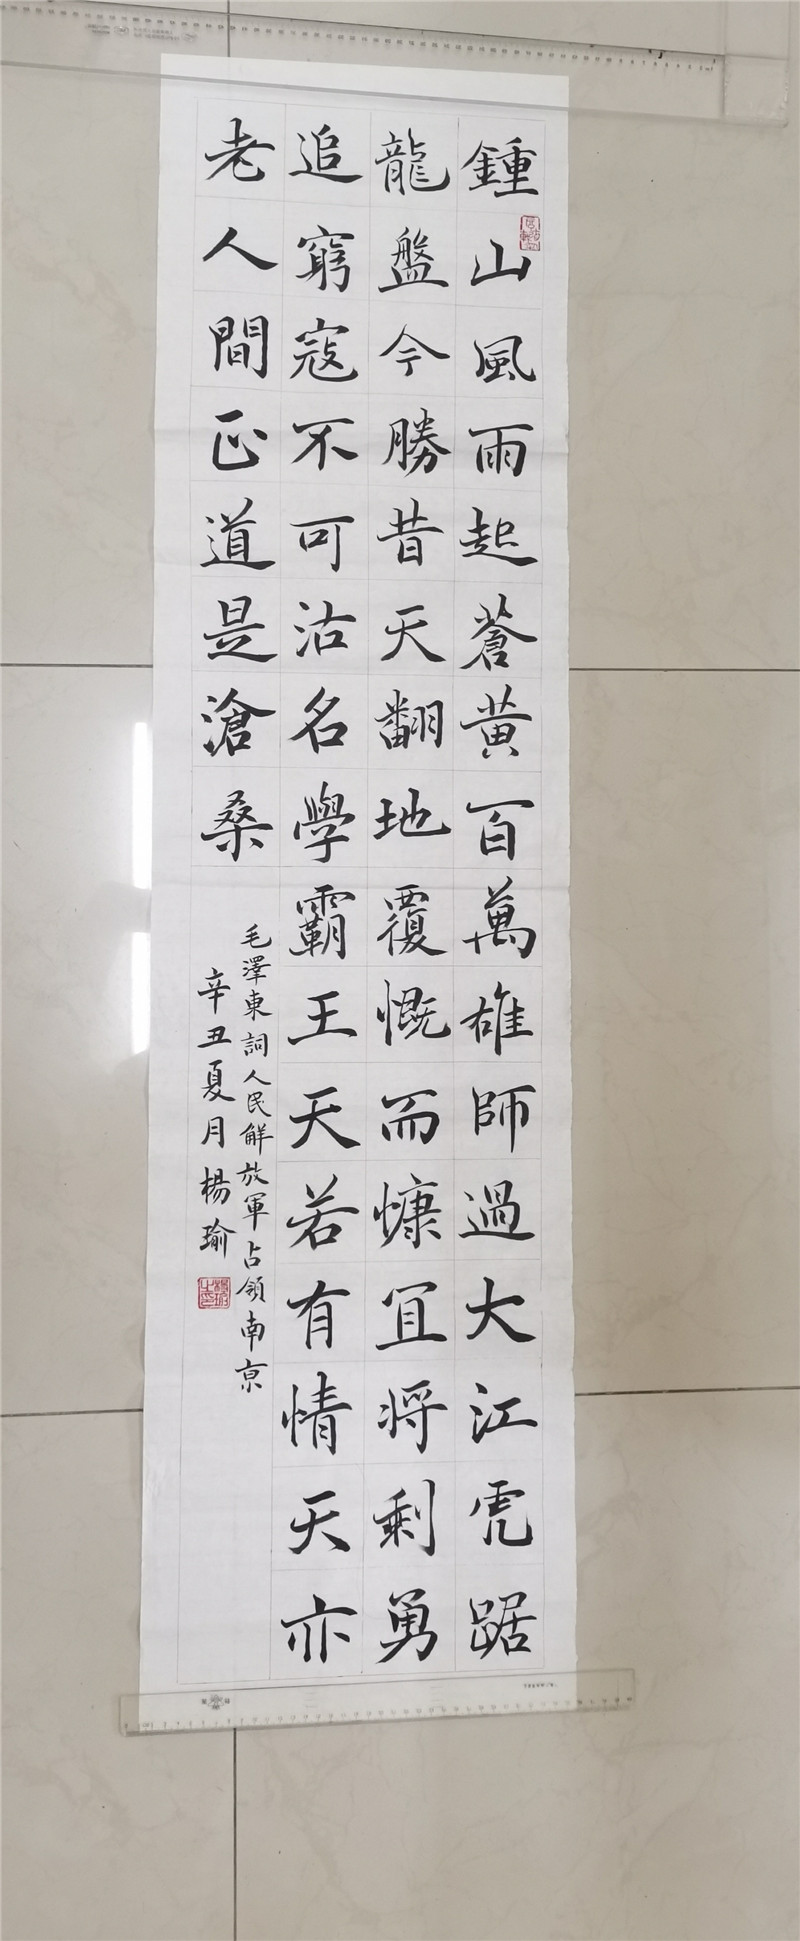 鍾山風雨起蒼黃百萬雄師過大江虎踞
龍盤今勝昔天翻地覆慨而慷宜將剩勇
追窮寇不可沽名學霸王天若有情天亦
老人間正道是滄桑
毛澤東詞人民解放軍占領南京
辛丑夏月楊瑜